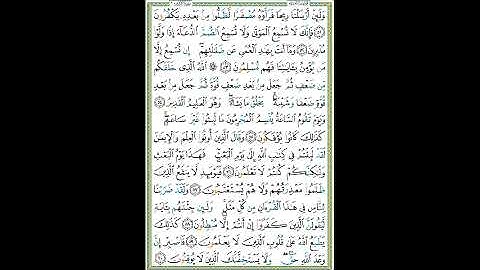 وَلَئِنْ أَرْسَلْنَا رِيحًا فَرَأَوْهُ مُصْفَرًّا لَظَلُّوا مِنْ بَعْدِهِ يَكْفُرُونَ
﴿٥١﴾ فَإِنَّكَ لَا تُسْمِعُ الْمَوْتَى وَلَا تُسْمِعُ الصُّمَّ الدُّعَاءَ إِذَا وَلَّوْا
مُدْبِرِينَ ﴿٥٢﴾ وَمَا أَنْتَ بِهَادِ الْعُمْيِ عَنْ ضَلَالَتِهِمْ إِنْ تُسْمِعُ إِلَّا
مَنْ يُؤْمِنُ بِآيَاتِنَا فَهُمْ مُسْلِمُونَ ﴿٥٣﴾ اللَّهُ الَّذِي خَلَقَكُمْ
مِنْ ضَعْفٍ ثُمَّ جَعَلَ مِنْ بَعْدِ ضَعْفٍ قُوَّةً ثُمَّ جَعَلَ مِنْ بَعْدِ
قُوَّةٍ ضَعْفًا وَشَيْبَةً يَخْلُقُ مَا يَشَاءُ وَهُوَ الْعَلِيمُ الْقَدِيرُ ﴿٥٤﴾
وَيَوْمَ تَقُومُ السَّاعَةُ يُقْسِمُ الْمُجْرِمُونَ مَا لَبِثُوا غَيْرَ سَاعَةٍ
كَذَلِكَ كَانُوا يُؤْفَكُونَ ﴿٥٥﴾ وَقَالَ الَّذِينَ أُوتُوا الْعِلْمَ وَالْإِيمَانَ
لَقَدْ لَبِثْتُمْ فِي كِتَابِ اللَّهِ إِلَى يَوْمِ الْبَعْثِ فَهَذَا يَوْمُ الْبَعْثِ
وَلَكِنَّكُمْ كُنْتُمْ لَا تَعْلَمُونَ ﴿٥٦﴾ فَيَوْمَئِذٍ لَا يَنْفَعُ الَّذِينَ
ظَلَمُوا مَعْذِرَتُهُمْ وَلَا هُمْ يُسْتَعْتَبُونَ ﴿٥٧﴾ وَلَقَدْ ضَرَبْنَا
لِلنَّاسِ فِي هَذَا الْقُرْآنِ مِنْ كُلِّ مَثَلٍ وَلَئِنْ جِئْتَهُمْ بِآيَةٍ
لَيَقُولَنَّ الَّذِينَ كَفَرُوا إِنْ أَنْتُمْ إِلَّا مُبْطِلُونَ ﴿٥٨﴾ كَذَلِكَ
يَطْبَعُ اللَّهُ عَلَى قُلُوبِ الَّذِينَ لَا يَعْلَمُونَ ﴿٥٩﴾ فَاصْبِرْ إِنَّ
وَعْدَ اللَّهِ حَقٌّ وَلَا يَسْتَخِفَّنَّكَ الَّذِينَ لَا يُوقِنُونَ ﴿٦٠﴾